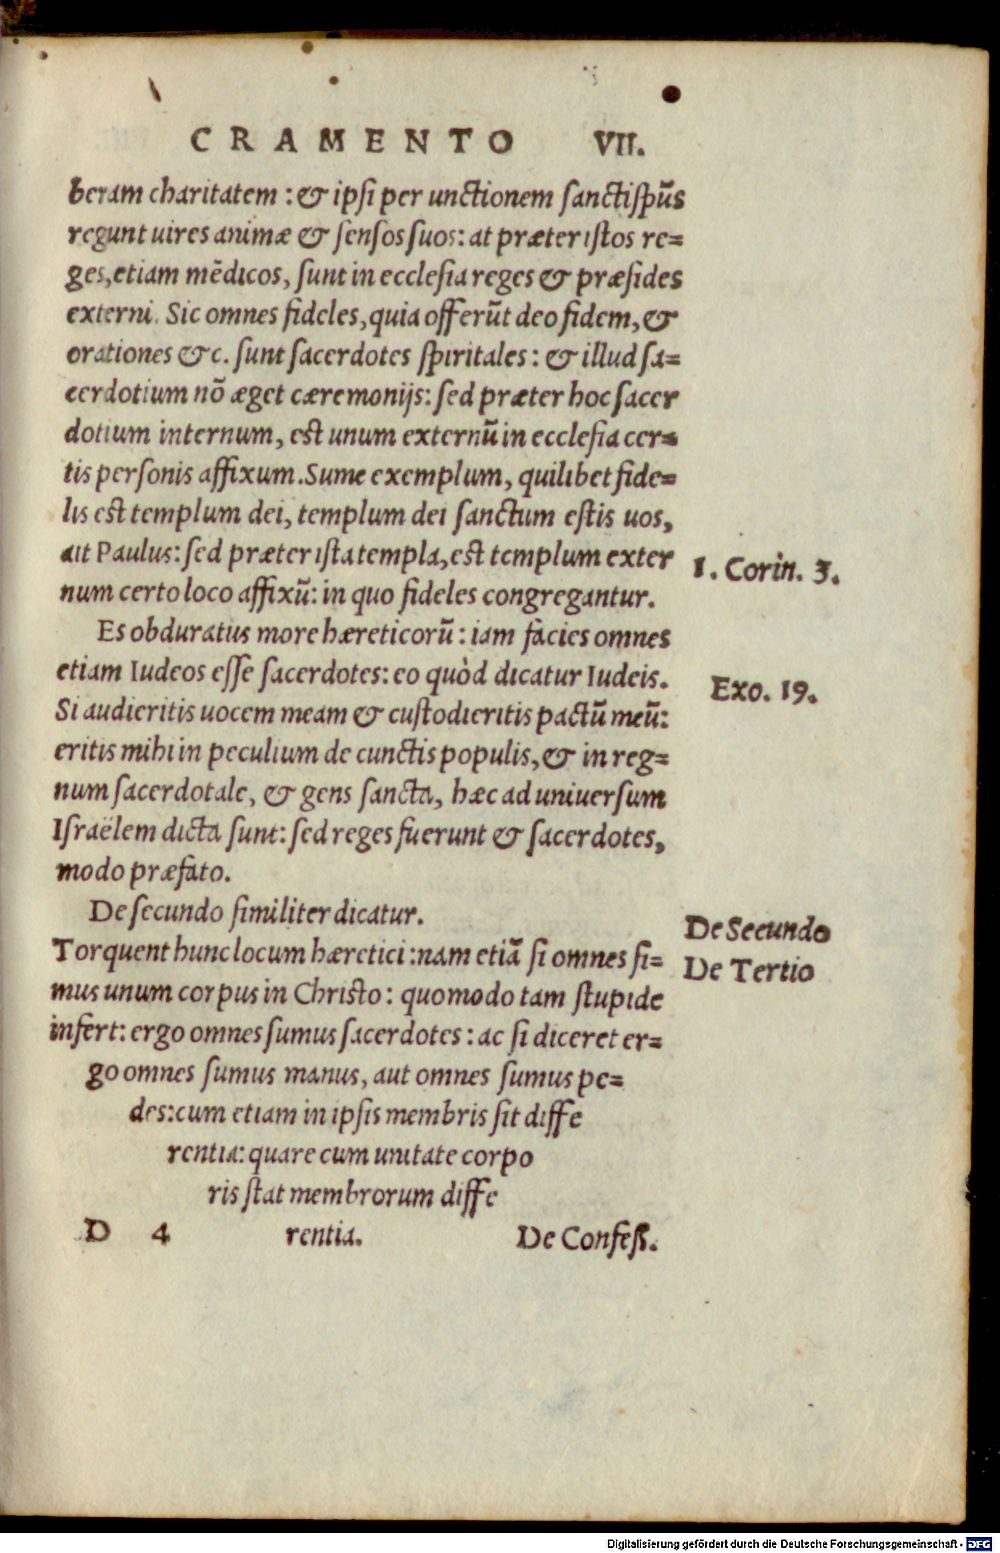 CRAMENTO VII.
beram charitatem : & ipsi per unctionem sanctispūs
regunt uires animæ & sensos suos: at præter istos re=
ges, etiam mēdicos, sunt in ecclesia reges & præsides
externi. Sic omnes fideles, quia offerūt deo fidem, &
orationes &c. sunt sacerdotes spiritales : & illud sa=
cerdotium nō æget cæremonijs: sed præter hoc sacer
dotium internum, est unum externū in ecclesia cer=
tis personis affixum. Sume exemplum, quilibet fide=
lis est templum dei, templum dei sanctum estis uos,
ait Paulus: sed præter ista templa, est templum exter
1. Corin. 3.
num certo loco affixū: in quo fideles congregantur.
Es obduratus more hæreticorū : iam facies omnes
etiam Iudeos esse sacerdotes: eo quòd dicatur Iudeis.
Exo. 19.
Si audieritis uocem meam & custodieritis pactū meū:
eritis mihi in peculium de cunctis populis, & in reg=
num sacerdotale, & gens sancta, hæc ad uniuersum
Israëlem dicta sunt: sed reges fuerunt & sacerdotes,
modo præfato.
De secundo similiter dicatur.
De Secundo
Torquent hunc locum hæretici : nam etiā si omnes si=
De Tertio
mus unum corpus in Christo : quomodo tam stupide
infert: ergo omnes sumus sacerdotes : ac si diceret er=
go omnes sumus manus, aut omnes sumus pe=
des: cum etiam in ipsis membris sit diffe
rentia: quare cum unitate corpo
ris stat membrorum diffe
D 4 rentia. De Confess.
Digitalisierung gefördert durch die Deutsche Forschungsgemeinschaft - DFG